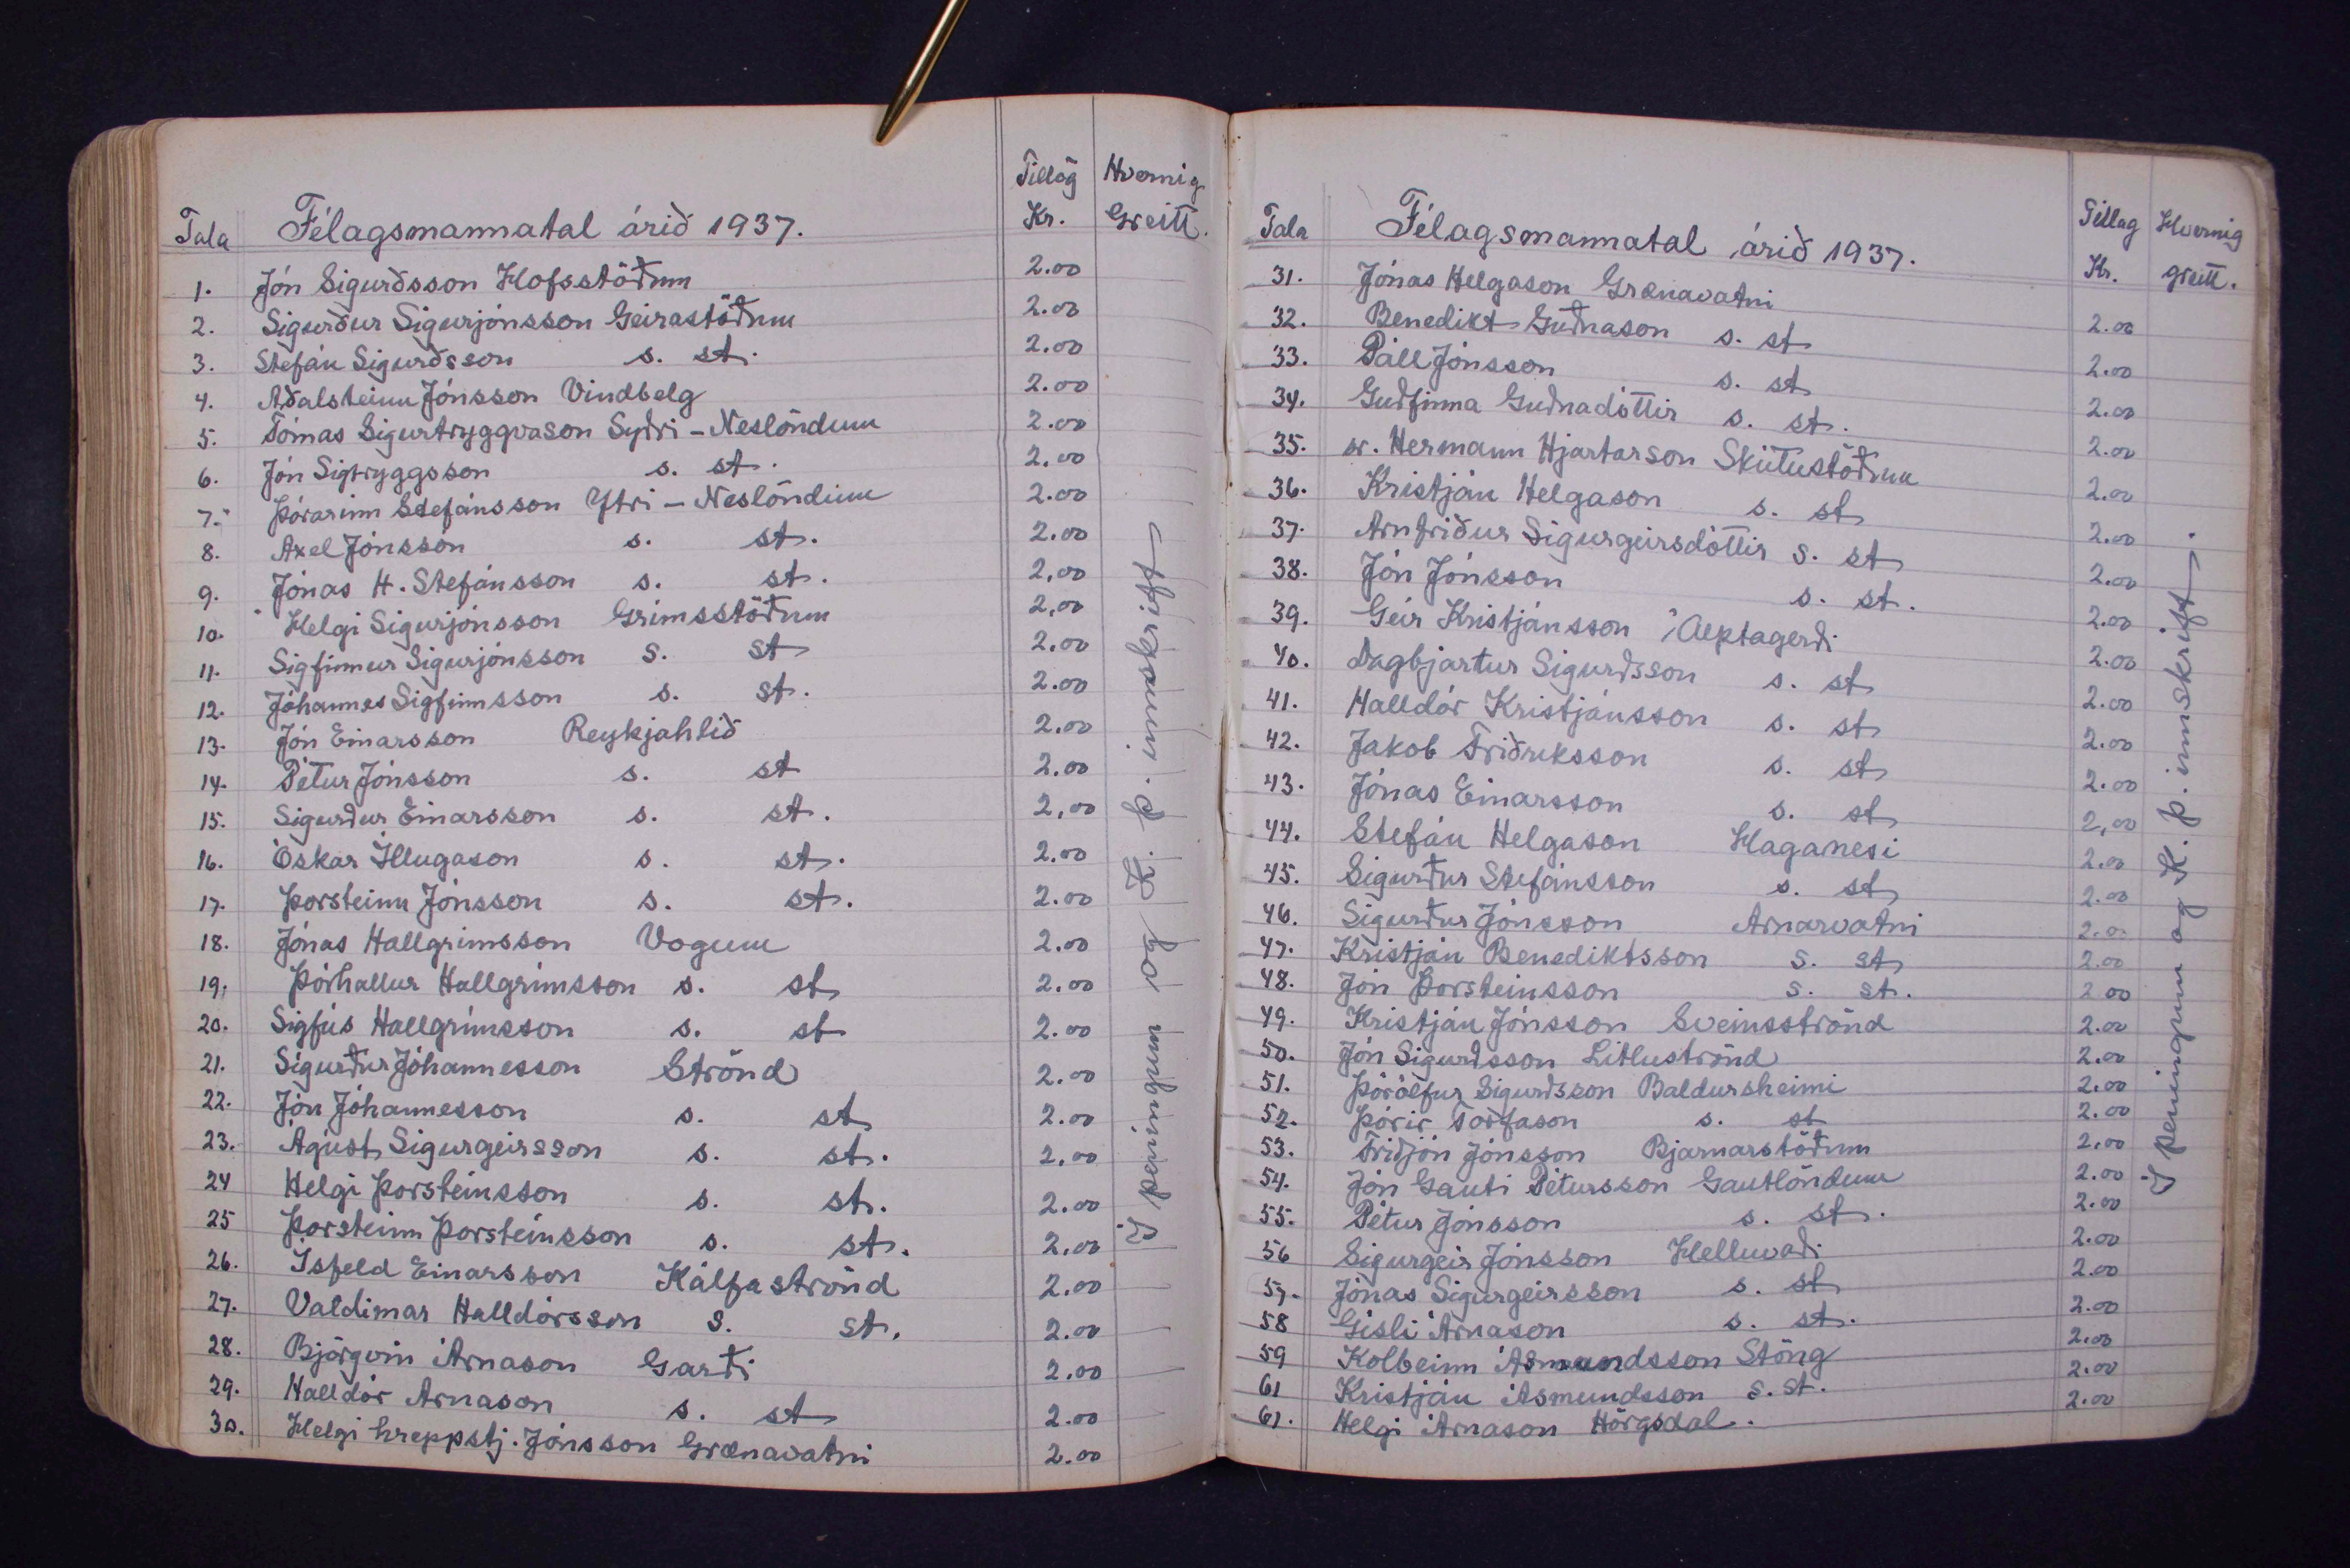 Tala Félagsmannatal árið 1937. Tillög Kr. Hvernig Greitt.
1. Jón Sigurðsson Hofsstöðum 2.00
2. Sigurður Sigurjónsson Geirastöðum 2.00
3. Stefán Sigurðsson s. st. 2.00
4. Aðalsteinn Jónsson Vindbelg 2.00
5. Tómas Sigurtryggvason Syðri-Neslöndum 2.00
6. Jón Sigtryggsson s. st. 2.00
7. Þórarinn Stefánsson Ytri-Neslöndum 2.00
8. Axel Jónsson s. st. 2.00
9. Jónas H. Stefánsson s. st. 2.00
10. Helgi Sigurjónsson Grímsstöðum 2.00
11. Sigfinnur Sigurjónsson s. st 2.00
12. Jóhannes Sigfinnsson s. st. 2.00
13. Jón Einarsson Reykjahlíð 2.00
14. Pétur Jónsson s. st 2.00
15. Sigurður Einarsson s. st. 2,00
16. Óskar Illugason s. st. 2.00
17. Þorsteinn Jónsson s. st. 2.00
18. Jónas Hallgrímsson Vogum 2.00
19. Þórhallur Hallgrímsson s. st 2.00
20. Sigfús Hallgrímsson s. st 2.00
21. Sigurður Jóhannesson Strönd 2.00
22. Jón Jóhannesson s. st 2.00
23. Ágúst Sigurgeirsson s. st. 2.00
24 Helgi Þorsteinsson s. st. 2.00
25 Þorsteinn Þorsteinsson s. st. 2.00
26. Ísfeld Einarsson Kálfaströnd 2.00
27. Valdimar Halldórsson s. st. 2.00
28. Björgvin Árnason Garði 2.00
29. Halldór Árnason s. st 2.00
30. Helgi hreppstj. Jónsson Grænavatni 2.00
Í peningum og K. Þ. innskrift
Tala Félagsmannatal árið 1937. Tillag Kr. Hvernig greitt.
31. Jónas Helgason Grænavatni 2.00
32. Benedikt Guðnason s. st 2.00
33. Páll Jónsson s. st 2.00
34. Guðfinna Guðnadóttir s. st. 2.00
35. sr. Hermann Hjartarson Skútustöðum 2.00
36. Kristján Helgason s. st 2.00
37. Arnfríður Sigurgeirsdóttir s. st 2.00
38. Jón Jónsson s. st. 2.00
39. Geir Kristjánsson Álptagerði 2.00
40. Dagbjartur Sigurðsson s. st 2.00
41. Halldór Kristjánsson s. st 2.00
42. Jakob Friðriksson s. st 2.00
43. Jónas Einarsson s. st 2,00
44. Stefán Helgason Haganesi 2.00
45. Sigurður Stefánsson s. st 2.00
46. Sigurður Jónsson Arnarvatni 2.00
47. Kristján Benediktsson s. st 2.00
48. Jón Þorsteinsson s. st. 2 00
49. Kristján Jónsson Sveinsströnd 2.00
50. Jón Sigurðsson Litluströnd 2.00
51. Þórólfur Sigurðsson Baldursheimi 2.00
52. Þórir Torfason s. st 2.00
53. Friðjón Jónsson Bjarnarstöðum 2.00
54. Jón Gauti Pétursson Gautlöndum 2.00
55. Pétur Jónsson s. st. 2.00
56 Sigurgeir Jónsson Helluvaði 2.00
57. Jónas Sigurgeirsson s. st 2.00
58 Gísli Árnason s. st. 2.00
59 Kolbeinn Ásmundsson Stöng 2.00
61 Kristján Ásmundsson s. st. 2.00
61. Helgi Árnason Hörgsdal. 2.00
Í peningum og K. Þ. innskrift.